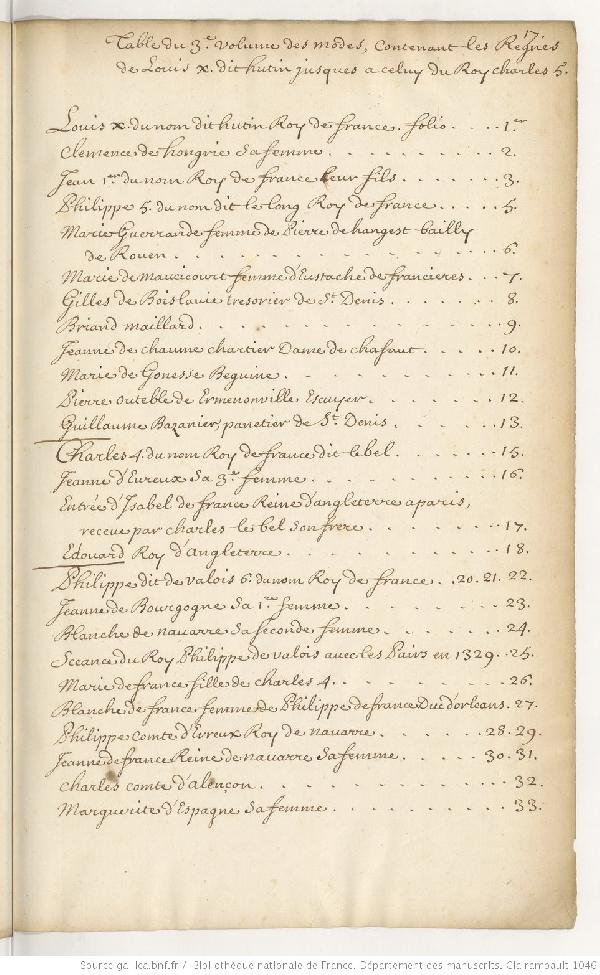 17.
Table du 3.e volume des modes, contenant les Regnes
de Louis x. dit hutin jusques a celuy du Roy charles 5.
Louis x. du nom dit hutin Roy de france. folio. . . . 1.er
Clemence de hongrie sa femme . . . . . . . . . 2.
Jean 1.er du nom Roy de france leur fils . . . . . 3.
Philippe 5. du nom dit le long Roy de france . . . . 5.
Marie Guerrande femme de Pierre de hangest bailly
de Rouen . . . . . . . . . . . . . . . 6.
Marie de maucicourt femme d'Eustache de francieres . . . 7.
Gilles de Boislavie tresorier de St Denis . . . . . . 8.
Briand maillard . . . . . . . . . . . . . 9.
Jeanne de chaume chartier Dame de chasaut . . . . . 10.
Marie de Gonesse Beguine . . . . . . . . . . 11.
Pierre outeble de Ermenonville Escuyer . . . . . . 12.
Guillaume Bazanier, panetier de St Denis . . . . . 13.
Charles 4. du nom Roy de france dit le bel . . . . . 15.
Jeanne d'Evreux sa 3.e femme . . . . . . . . . 16.
Entrée d'Isabel de france Reine d'angleterre a paris,
receue par charles le bel son frere . . . . . . . 17.
Edouard Roy d'Angleterre . . . . . . . . . . 18.
Philippe dit de valois 6. du nom Roy de france . . 20. 21. 22.
Jeanne de Bourgogne sa 1.re femme . . . . . . . . 23.
Blanche de navarre sa seconde femme . . . . . . 24.
Sceance du Roy Philippe de valois avec les Pairs en 1329 . 25.
Marie de france fille de charles 4. . . . . . . . . 26.
Blanche de france femme de Philippe de france Duc d'orleans. 27.
Philippe comte d'Evreux Roy de navarre . . . . . 28. 29.
Jeanne de france Reine de navarre sa femme . . . . 30. 31.
Charles comte d'alençon . . . . . . . . . . . 32.
Marguerite d'Espagne sa femme . . . . . . . . . 33.
Source gallica.bnf.fr / Bibliothèque nationale de France. Département des manuscrits. Clairambault 1046